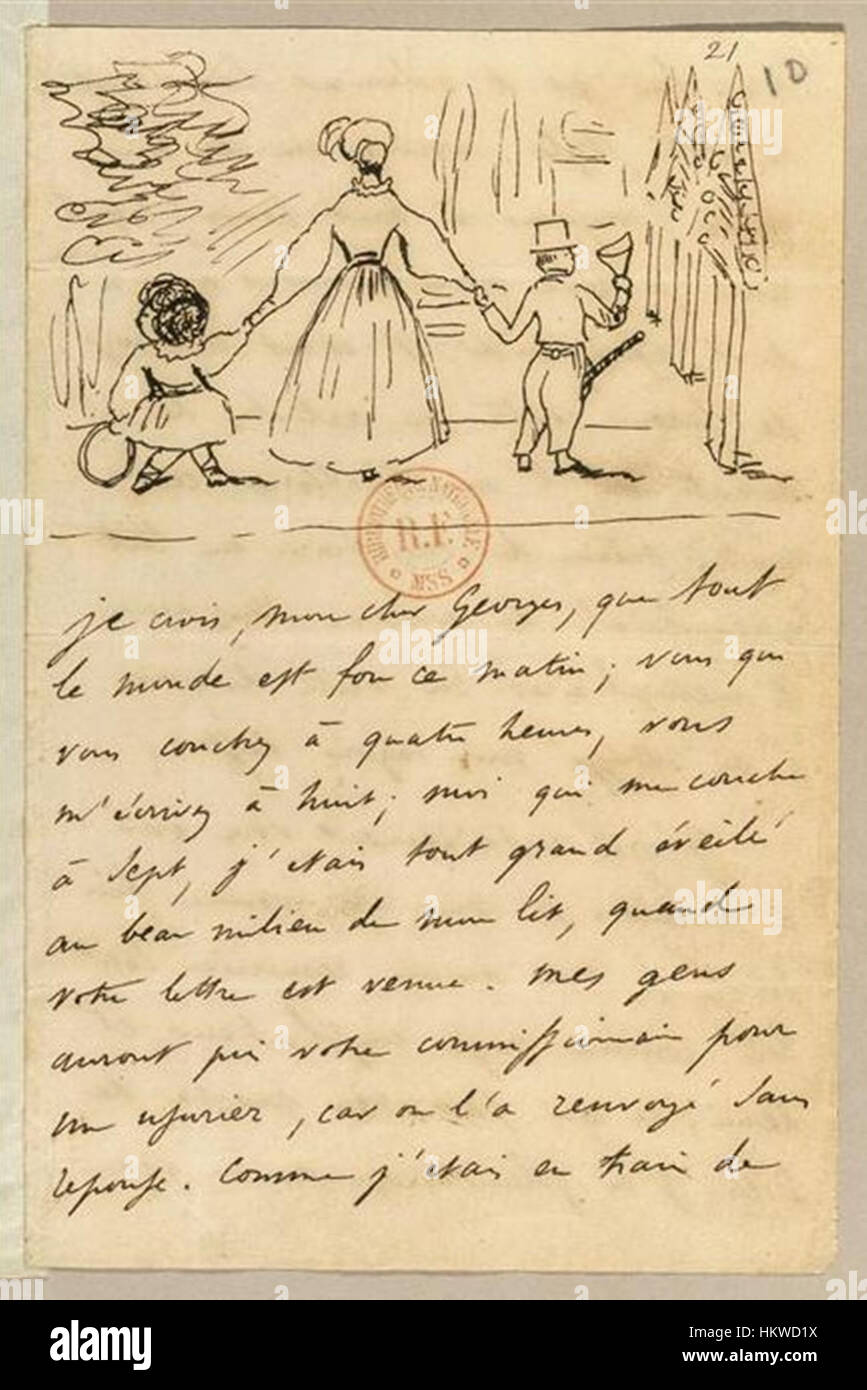 21
10
BIBLIOTHEQUE NATIONALE
R.F.
MSS
je crois, mon cher Georges, que tout
le monde est fou ce matin ; vous qui
vous couchez à quatre heures, vous
m'écrivez à huit ; moi qui me couche
à sept, j'étais tout grand éveillé
au beau milieu de mon lit, quand
votre lettre est venue. mes gens
auront pris votre commissionnaire pour
un usurier, car on l'a renvoyé sans
reponse. Comme j'étais en train de
alamy
alamy
Image ID: HKWD1X
www.alamy.com